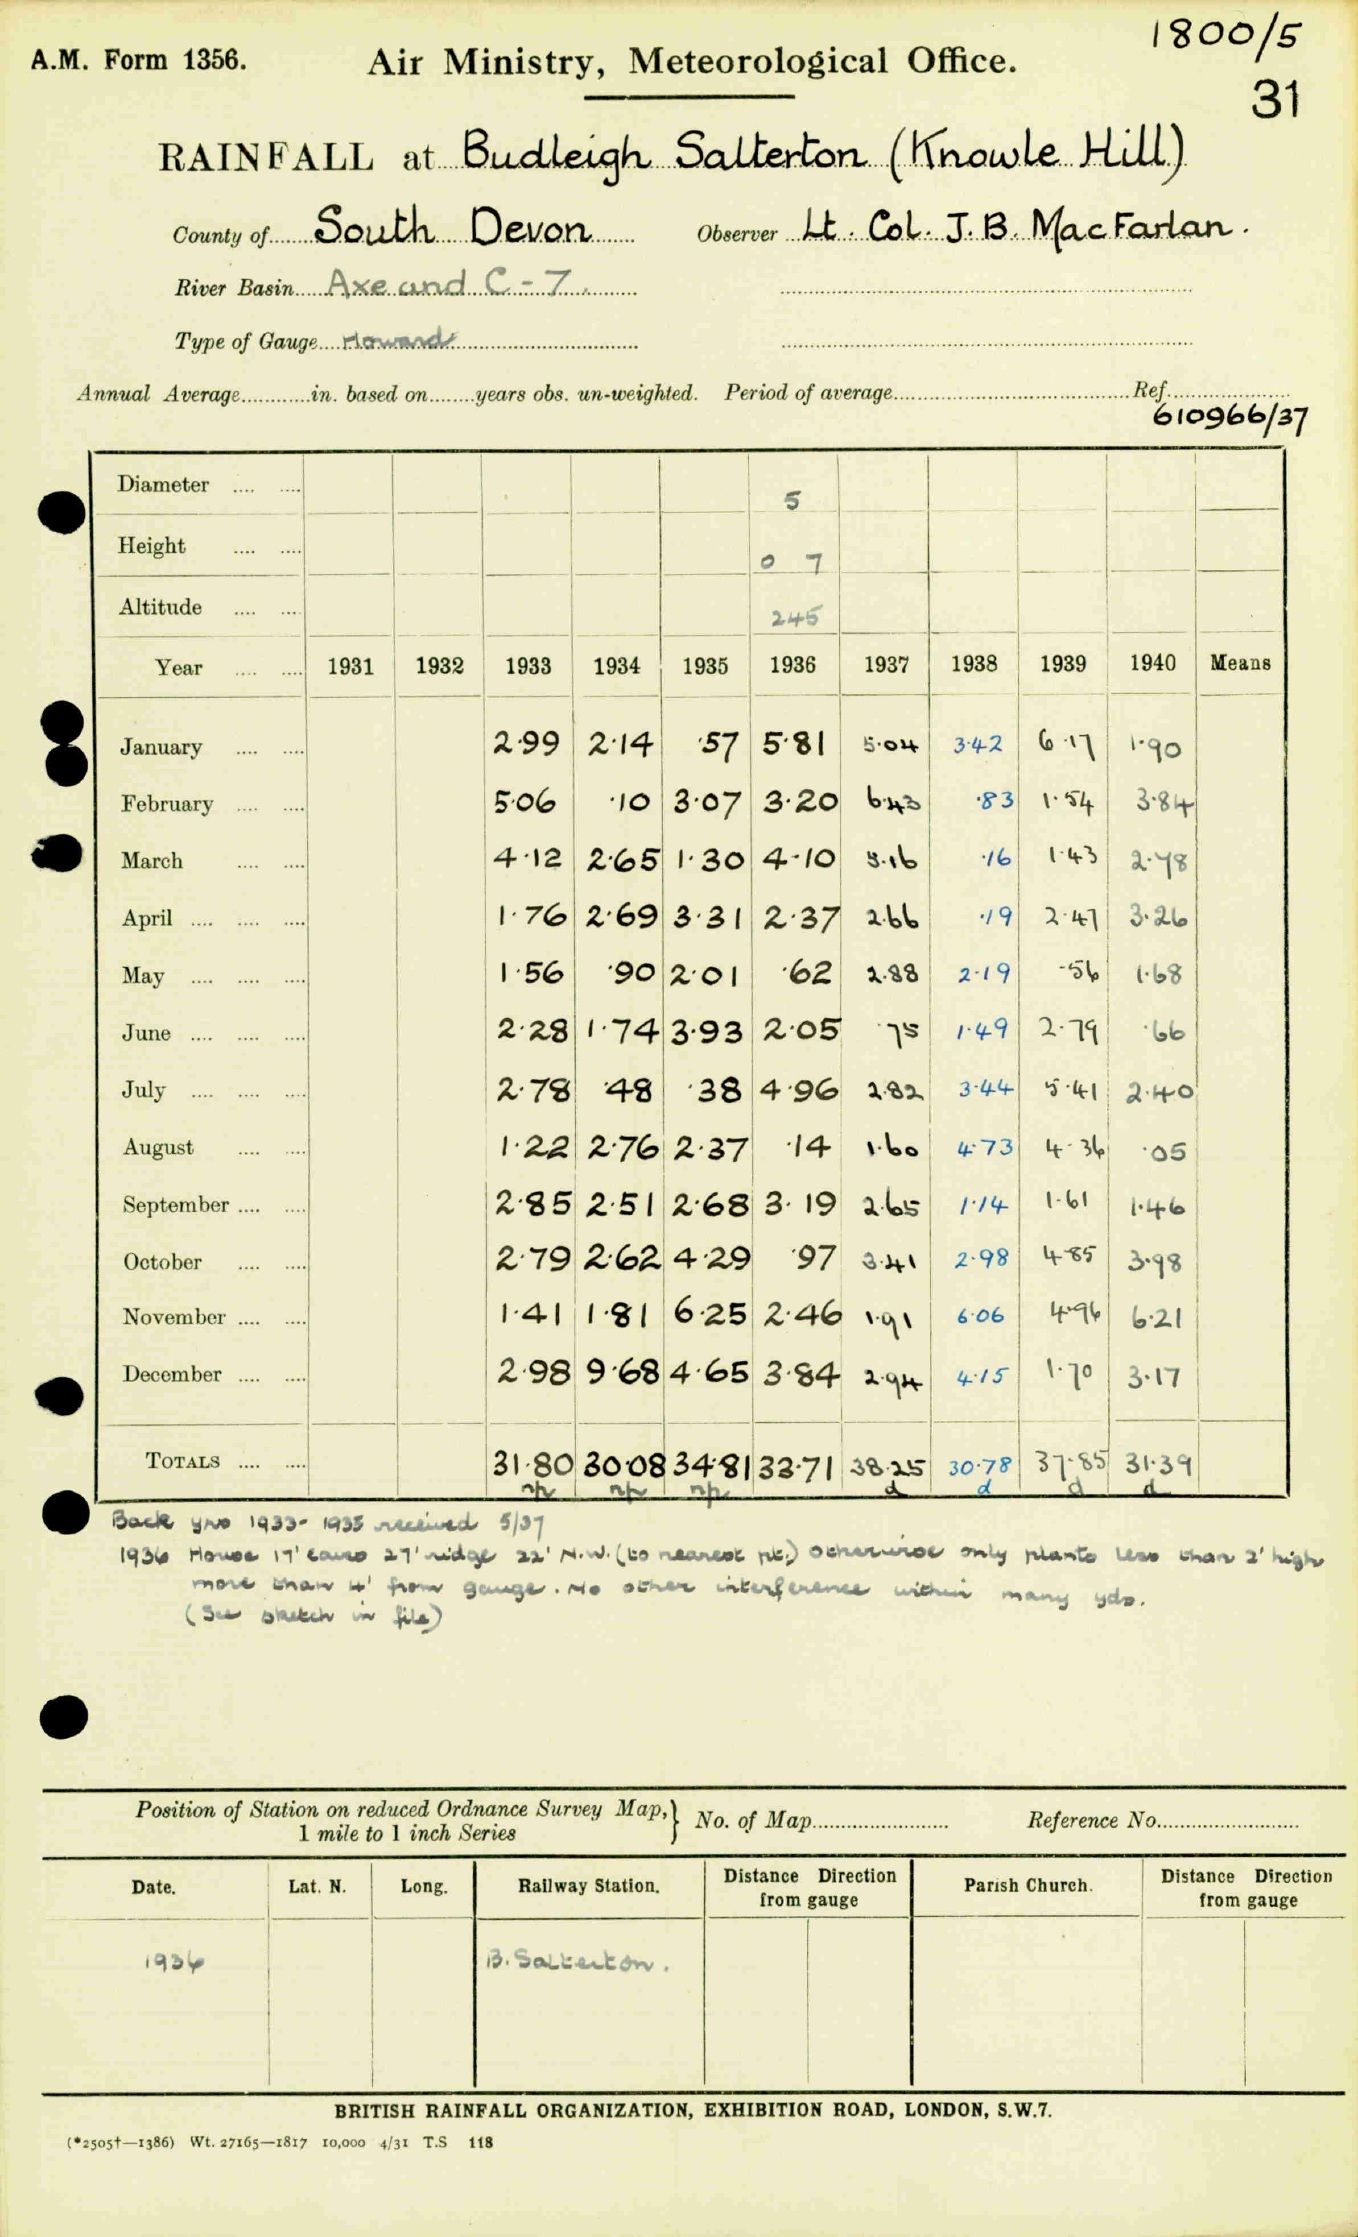 1800/5
A.M. Form 1356. Air Ministry, Meteorological Office.
31
RAINFALL at Budleigh Salterton (Knowle Hill)
County of South Devon Observer Lt. Col. J.B. MacFarlan.
River Basin Axe and C-7.
Type of Gauge Howard
Annual Average............in. based on........years obs. un-weighted. Period of average............Ref............
610966/37
Diameter .... .... 5
Height .... .... 0 7
Altitude .... .... 245
Year .... .... 1931 1932 1933 1934 1935 1936 1937 1938 1939 1940 Means
January .... .... 2·99 2·14 ·57 5·81 5·04 3·42 6·17 1·90
February .... .... 5·06 ·10 3·07 3·20 6·43 ·83 1·54 3·84
March .... .... 4·12 2·65 1·30 4·10 5·16 ·16 1·43 2·78
April .... .... .... 1·76 2·69 3·31 2·37 2·66 ·19 2·47 3·26
May .... .... .... 1·56 ·90 2·01 ·62 2·88 2·19 ·56 1·68
June .... .... .... 2·28 1·74 3·93 2·05 ·75 1·49 2·79 ·66
July .... .... .... 2·78 ·48 ·38 4·96 2·82 3·44 5·41 2·40
August .... .... 1·22 2·76 2·37 ·14 1·60 4·73 4·36 ·05
September .... .... 2·85 2·51 2·68 3·19 2·65 1·14 1·61 1·46
October .... .... 2·79 2·62 4·29 ·97 3·41 2·98 4·85 3·98
November .... .... 1·41 1·81 6·25 2·46 1·91 6·06 4·96 6·21
December .... .... 2·98 9·68 4·65 3·84 2·94 4·15 1·70 3·17
TOTALS .... .... 31·80 30·08 34·81 33·71 38·25 30·78 37·85 31·39
np np np d d d d
Back yrs 1933-1935 received 5/37
1936 House 17' eaves 27' ridge 22' N.W. (to nearest pt.) Otherwise only plants less than 2' high
more than 4' from gauge. No other interference within many yds.
(See sketch in file)
Position of Station on reduced Ordnance Survey Map,} No. of Map............ Reference No............
1 mile to 1 inch Series
Date. Lat. N. Long. Railway Station. Distance Direction Parish Church. Distance Direction
from gauge from gauge
1936 B. Salterton.
BRITISH RAINFALL ORGANIZATION, EXHIBITION ROAD, LONDON, S.W.7.
(*2505†—1386) Wt. 27165—1817 10,000 4/31 T.S 118